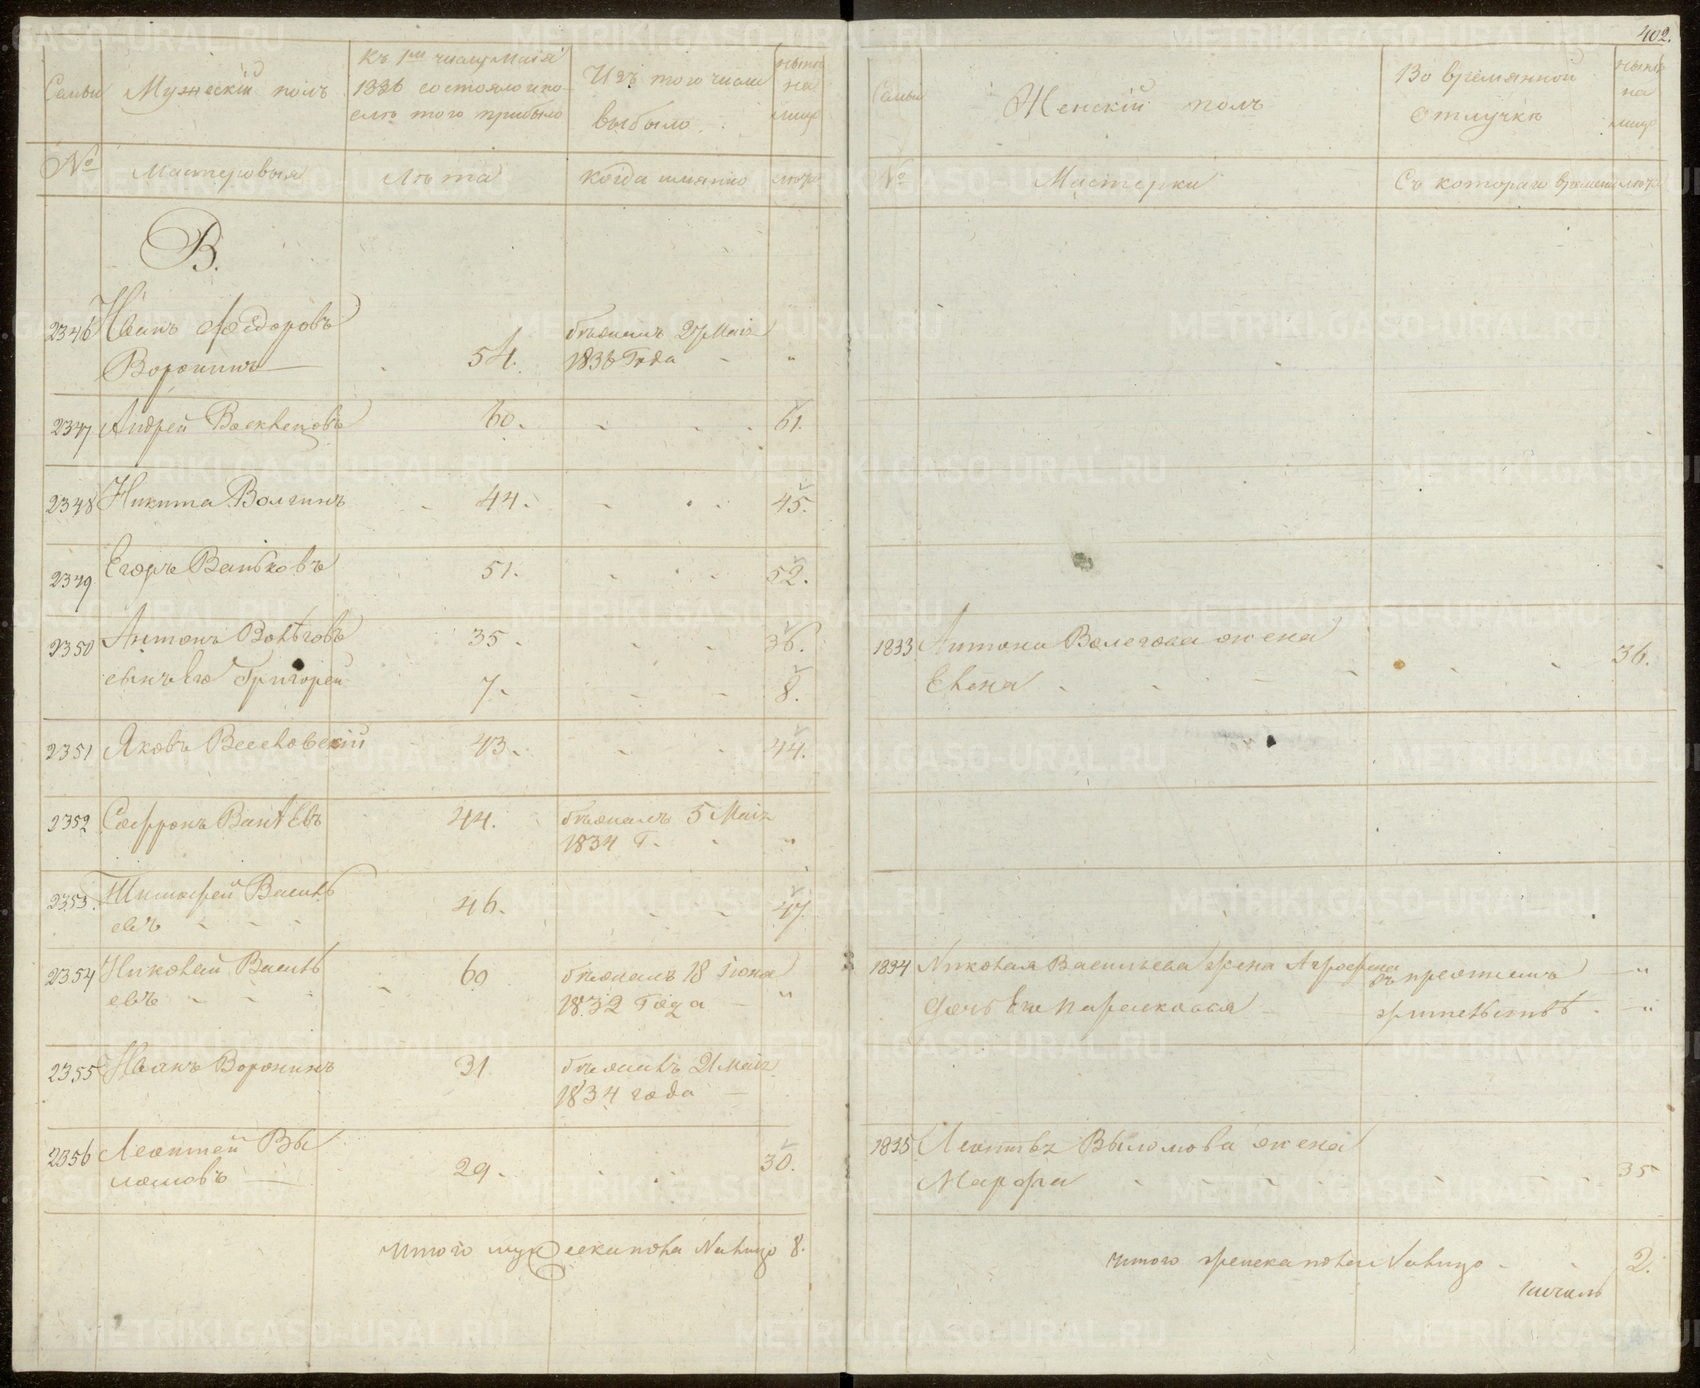 402.
Семьи
Мужескій полъ
Къ 1му числу Маія
1836 состояло и по-
слѣ того прибыло
Изъ того числа
выбыло
нынѣ
на
лицо
№
Мастеровыя
Лѣта
когда имянно
лѣта
В.
2346 Иванъ Фёдоровъ
Воронинъ 54. бѣжалъ 27 Маія
1836 Года - "
2347 Андрей 60. 61.
2348 Никита Волгинъ 44. 45.
2349 ЕгоръВаньковъ 51. 52.
2350 Антонъ Волѣговъ 35 36.
сынъ Его Григорей 7. 8.
2351 Яковъ 43. 44.
2352 Софронъ 44. бѣжалъ 5 Маія
1834 Г. "
2353 Тимофей Василь
евъ 46. 47.
2354 Николай Василь
евъ 60 бѣжалъ 18 Іюня
1832 Года "
2355 Иванъ Воронинъ 31 бѣжалъ 21 Маія
1834 года
2356 Леонтей Вы
ломовъ 29. 30.
Итого мужеска пола Налицо 8.
Семьи
Женскій полъ
Во времянной
Отлучкѣ
нынѣ
на
лицо
№
Мастерки
Съ котораго времени
лѣта
1833 Антона Волегова жена
Елена 36.
1834 Николая Васильева жена Агрофена въ прежнемъ "
дочь Его Парасковья жительствѣ "
1835 Леонтья Выломова жена
Марфа 35
Итого женска пола Налицо 2.
METRIKI.GASO-URAL.RU